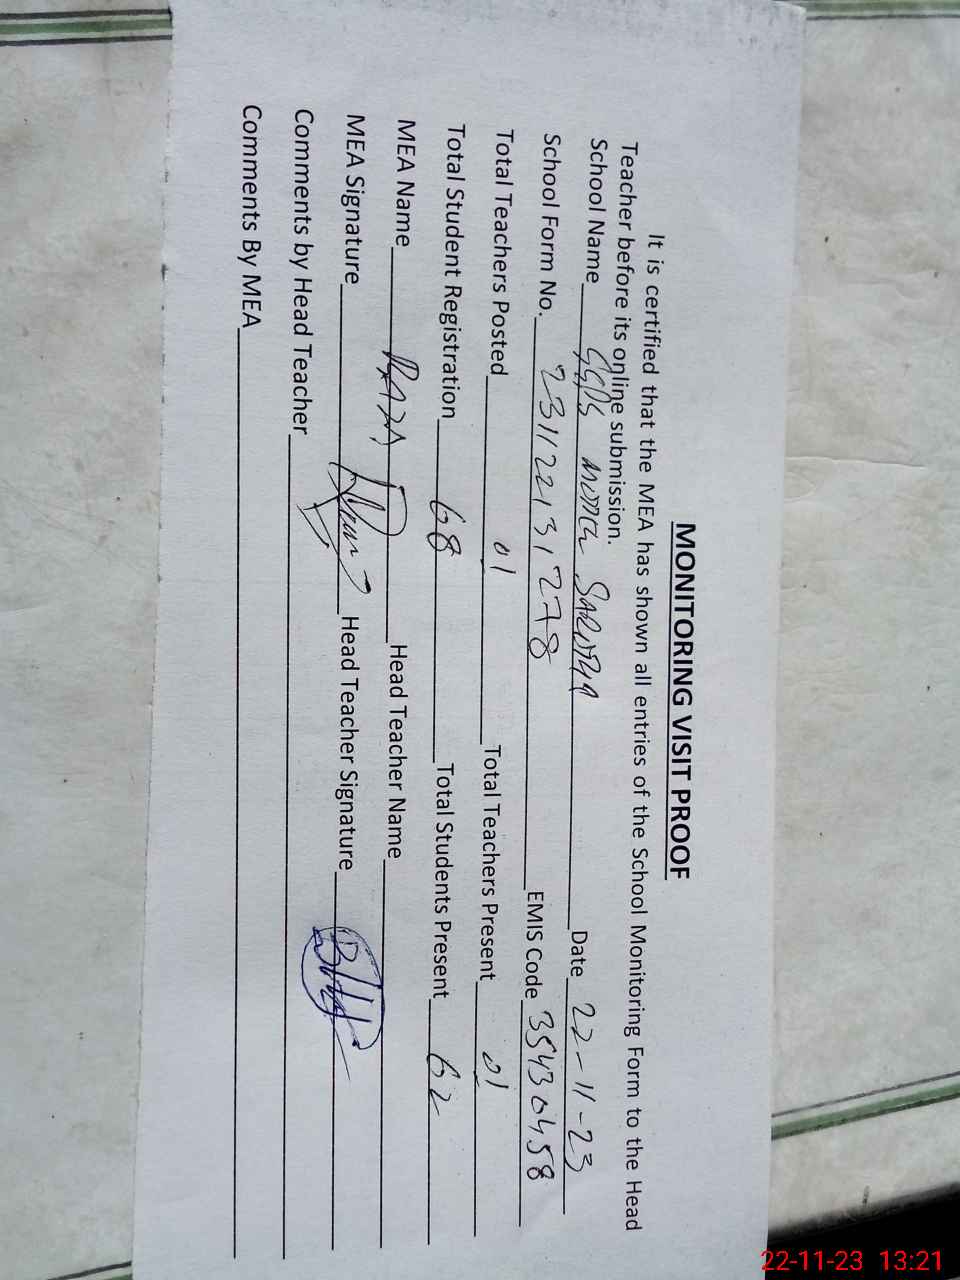 MONITORING VISIT PROOF
It is certified that the MEA has shown all entries of the School Monitoring Form to the Head
Teacher before its online submission.
School Name GGPS Date 22-11-23
School Form No. 231122131278 EMIS Code 35430458
Total Teachers Posted 01 Total Teachers Present 01
Total Student Registration 68 Total Students Present 62
MEA Name RAZA Head Teacher Name
MEA Signature Head Teacher Signature
Comments by Head Teacher
Comments By MEA
22-11-23 13:21